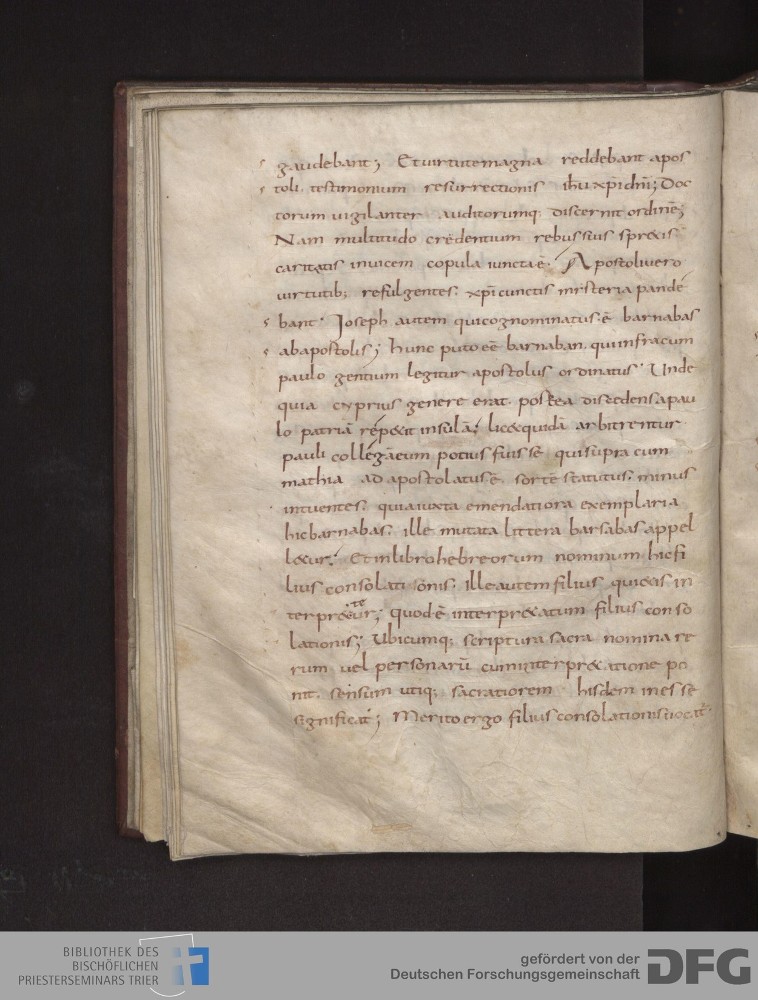 gaudebant; Et uirtute magna reddebant apos
toli testimonium resurrectionis ihu xpi dni; Doc
torum uigilanter auditorumq; discernit ordinē;
Nam multitudo credentium rebus suis spretis
caritatis inuicem copula iuncta ē. Apostoli uero
uirtutib; refulgentes. xpi cunctis misteria pande
bant. Ioseph autem qui cognominatus ē barnabas
ab apostolis; hunc puto eē barnaban. qui infra cum
paulo gentium legitur apostolus ordinatus. Unde
quia cyprius genere erat. postea discedens a pau
lo patriā repetit insulā; licet quidā arbitrentur
pauli collegā eum potius fuisse qui supra cum
mathia ad apostolatus ē sorte statutus. minus
intuentes. quia iuxta emendatiora exemplaria
hic barnabas. ille mutata littera barsabas appel
letur. Et in libro hebreorum nominum hic fi
lius consolationis. ille autem filius quietis in
terpretetur; quod ē interpretatum filius conso
lationis; Ubicumq; scriptura sacra nomina re
rum uel personarū cum interpretatione po
nit. sensum utiq; sacratiorem hisdem inesse
significat; Merito ergo filius consolationis uocat
BIBLIOTHEK DES
BISCHÖFLICHEN
PRIESTERSEMINARS TRIER
gefördert von der
Deutschen Forschungsgemeinschaft
DFG